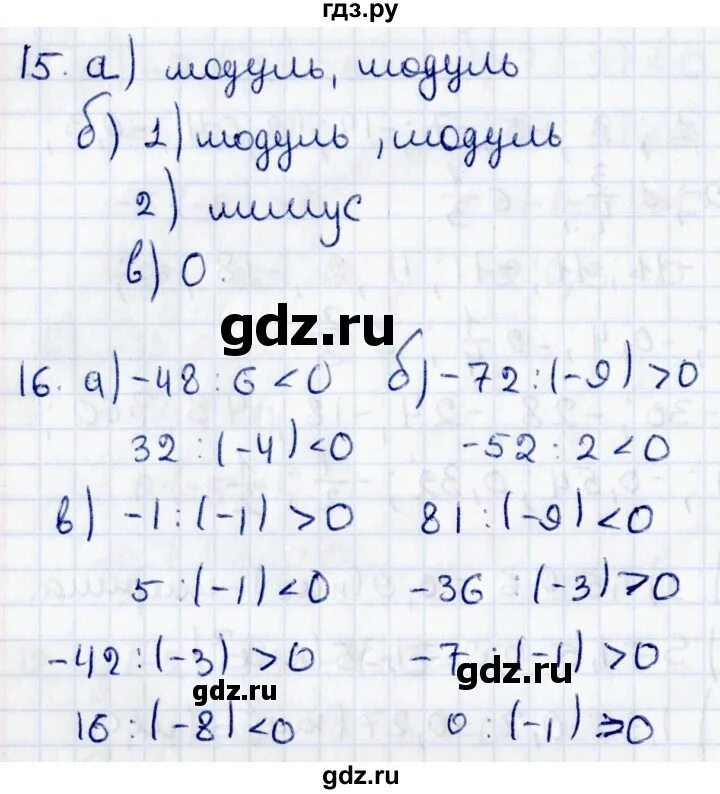 гдз.ру
15. а) модуль, модуль
б) 1) модуль, модуль
2) минус
в) 0.
gdz.ru
16. а) -48 : 6 < 0 б) -72 : (-9) > 0
32 : (-4) < 0 -52 : 2 < 0
в) -1 : (-1) > 0 81 : (-9) < 0
5 : (-1) < 0 -36 : (-3) > 0
-42 : (-3) > 0 -7 : (-1) > 0
gdz.ru gdz.ru
16 : (-8) < 0 0 : (-1) = 0
gdz.ru